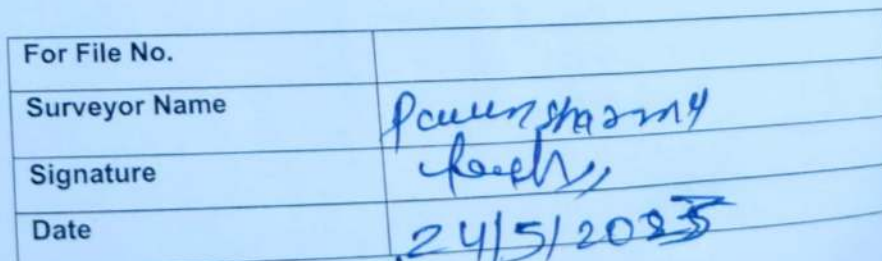 For File No.
Surveyor Name Pawan Sharma
Signature
Date 24/5/2025